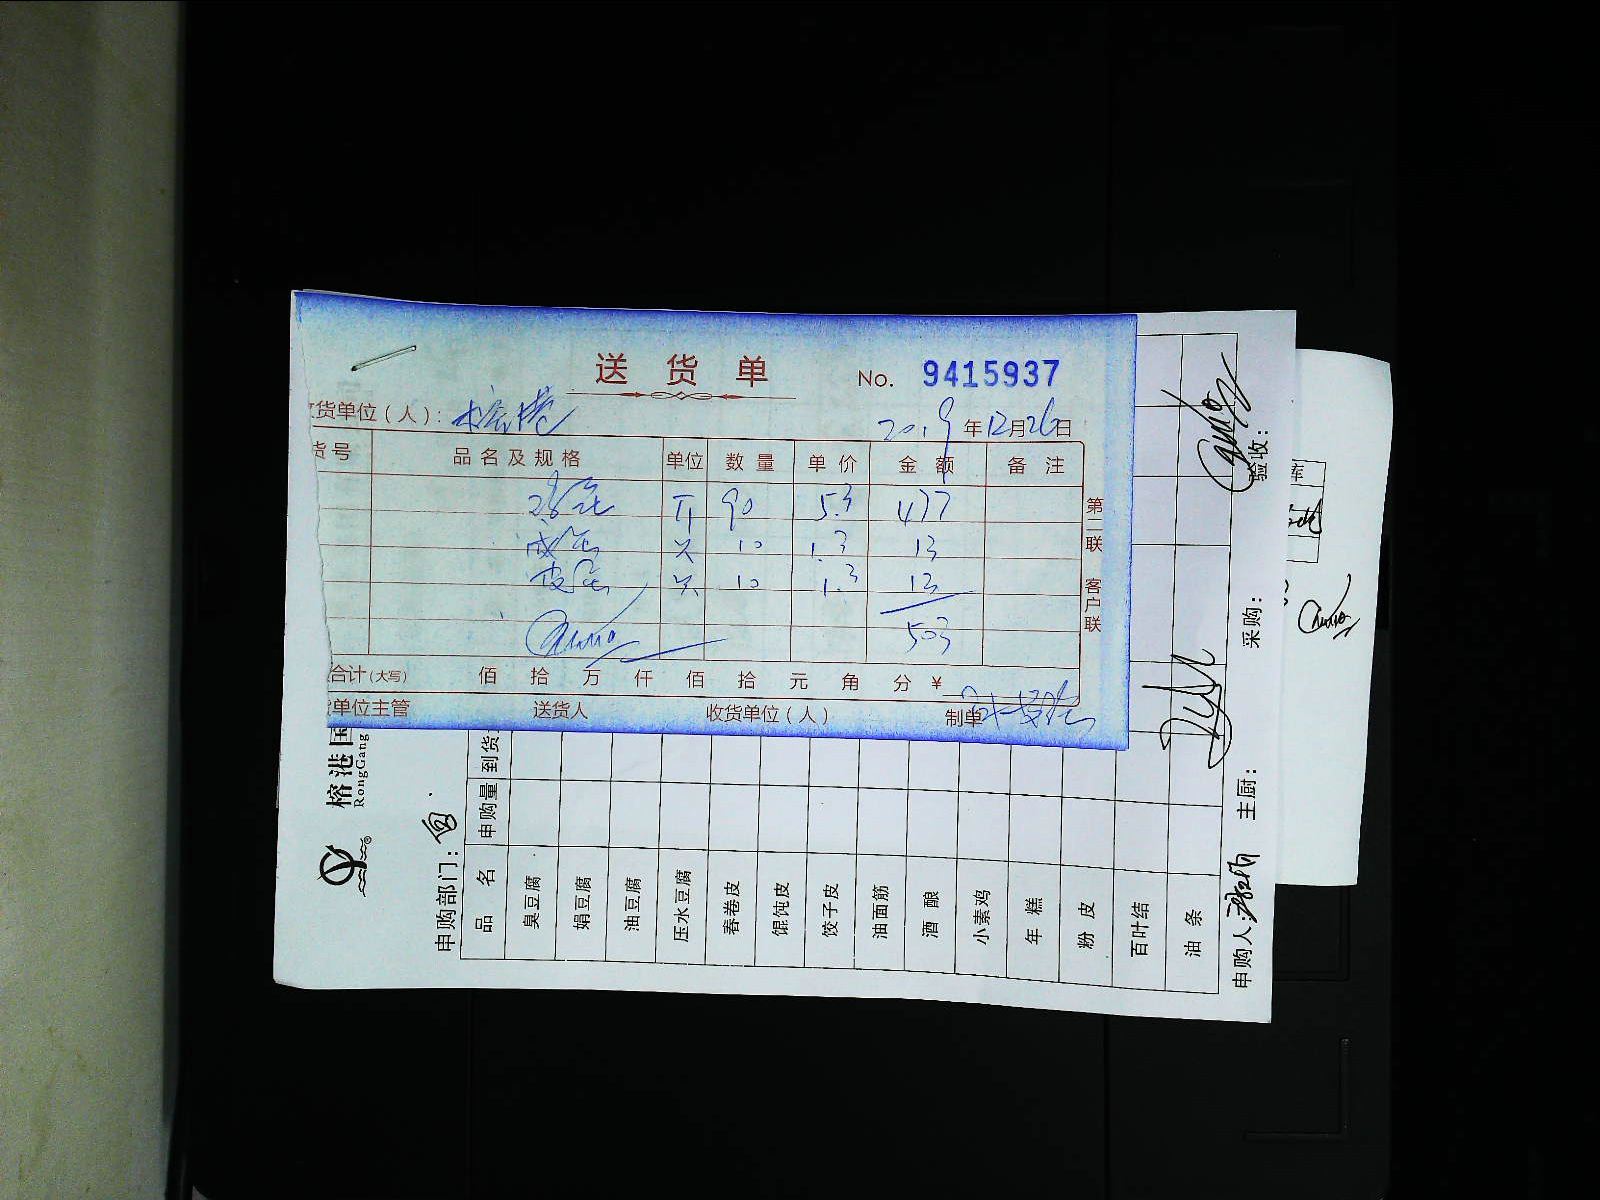 送货单
No. 9415937
货单位（人）：榕港
2019年12月26日
货号 品名及规格 单位 数量 单价 金额 备注
90 5.3 477
咸蛋 只 10 1.3 13
皮蛋 只 10 1.3 13
503
合计（大写） 佰 拾 万 仟 佰 拾 元 角 分 ￥
单位主管 送货人 收货单位（人） 制单
第二联 客户联
榕港国
RongGang
申购部门：
品名 申购量 到货
臭豆腐
娟豆腐
油豆腐
压水豆腐
春卷皮
馄饨皮
饺子皮
油面筋
酒酿
小素鸡
年糕
粉皮
百叶结
油条
申购人： 主厨： 采购： 验收：
库